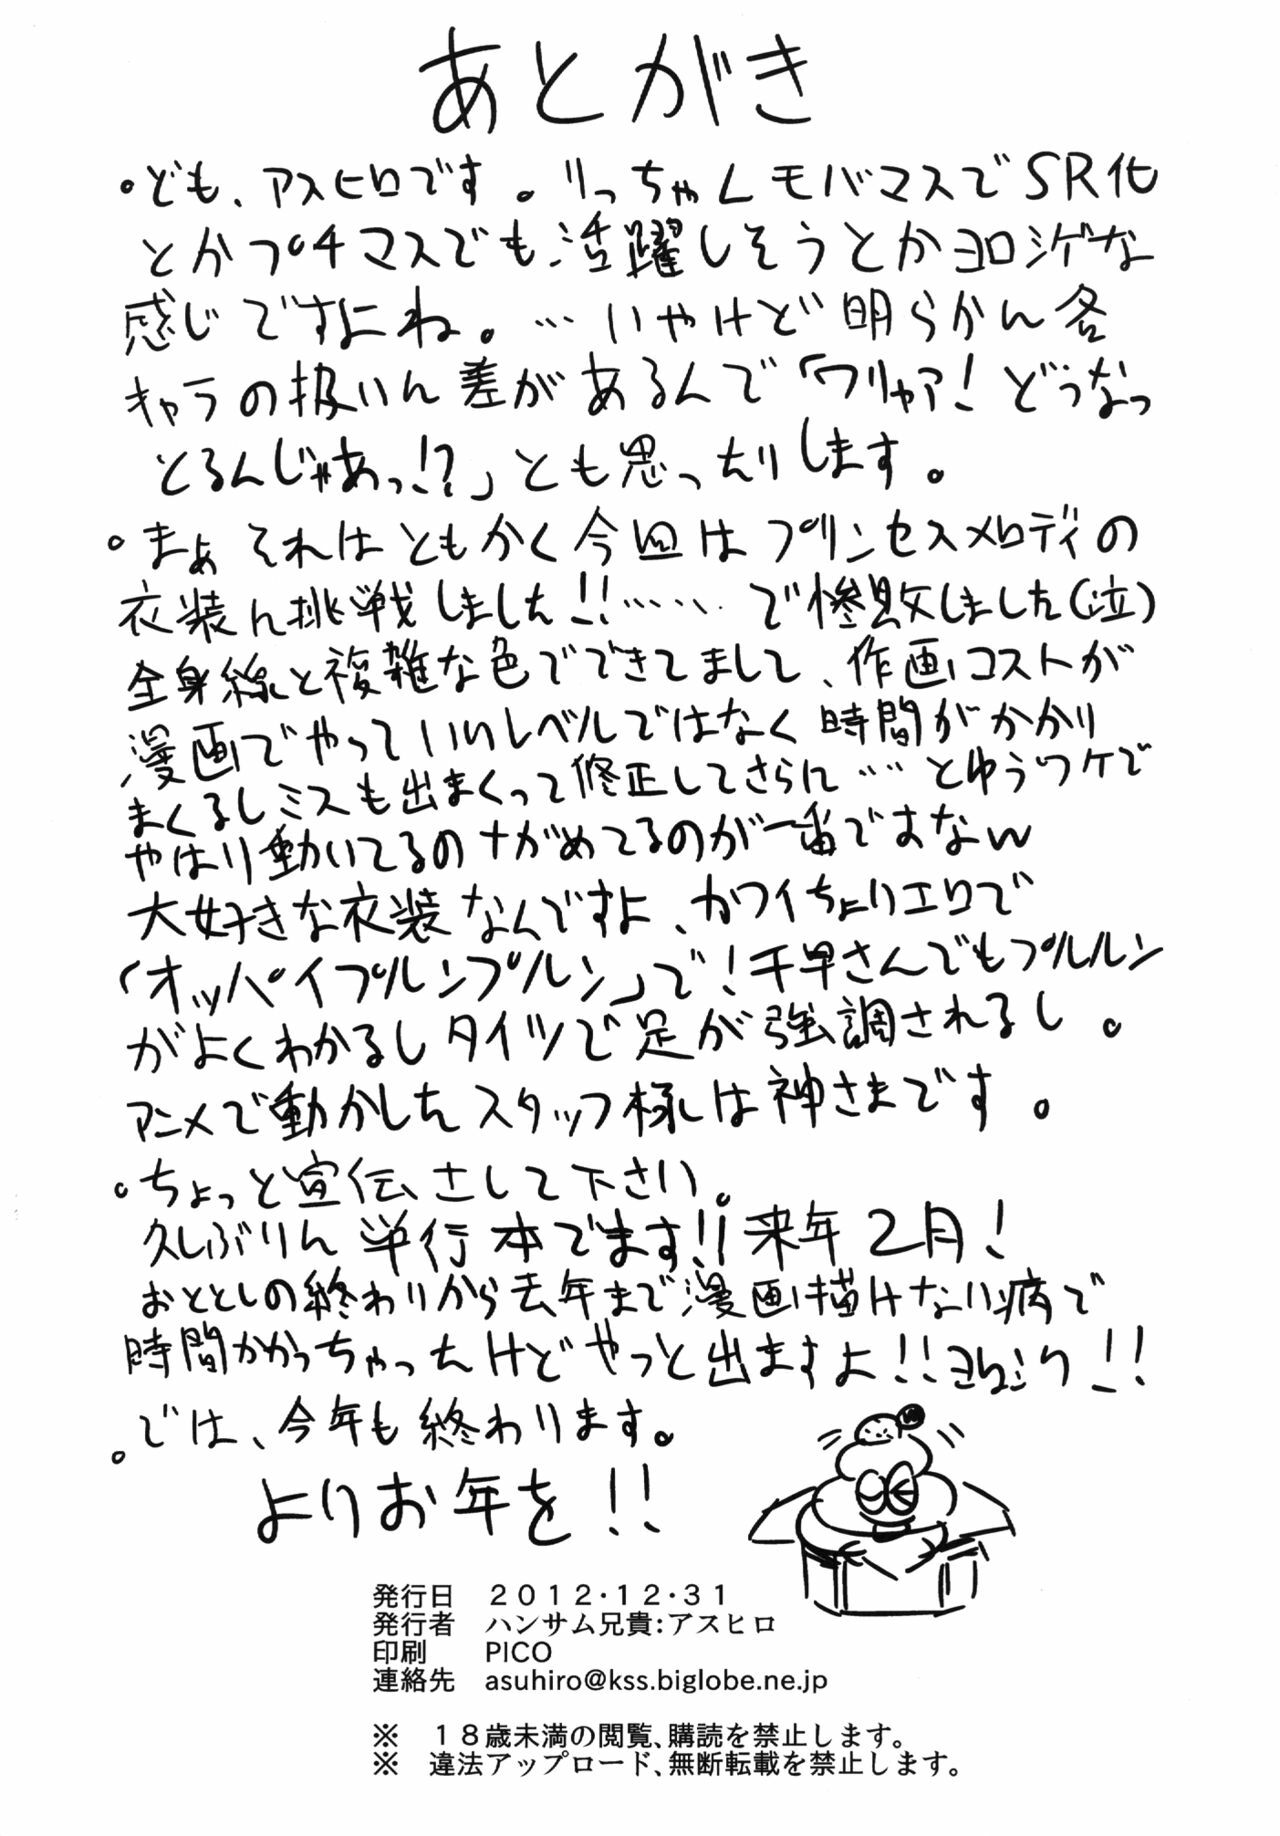 あとがき
・ども、アスヒロです。りっちゃんモバマスでSR化
とかプチマスでも活躍しそうとかヨロシゲな
感じですよね。…いやけど明らかに各
キャラの扱いに差があるんで「ワリャア!どうなっ
とるんじゃあっ!?」とも思ったりします。
・まぁそれはともかく今回はプリンセスメロディの
衣装に挑戦しました!!……で惨敗しました(泣)
全身線と複雑な色でできてまして、作画コストが
漫画でやっていいレベルではなく時間がかかり
まくるしミスも出まくって修正してさらに…とゆうワケで
やはり動いてるのナがめてるのが一番ですなw
大好きな衣装なんですよ、カワイちょりエロで
「オッパイプルンプルン」で!千早さんでもプルルン
がよくわかるしタイツで足が強調されるし。
アニメで動かしたスタッフ様は神さまです。
・ちょっと宣伝さして下さい。
久しぶりに単行本でます!!来年2月!
おととしの終わりから去年まで漫画描けない病で
時間かかっちゃったけどやっと出ますよ!!ヨロシク!!
・では、今年も終わります。
よいお年を!!
発行日 2012・12・31
発行者 ハンサム兄貴:アスヒロ
印刷 PICO
連絡先 asuhiro@kss.biglobe.ne.jp
※ 18歳未満の閲覧、購読を禁止します。
※ 違法アップロード、無断転載を禁止します。